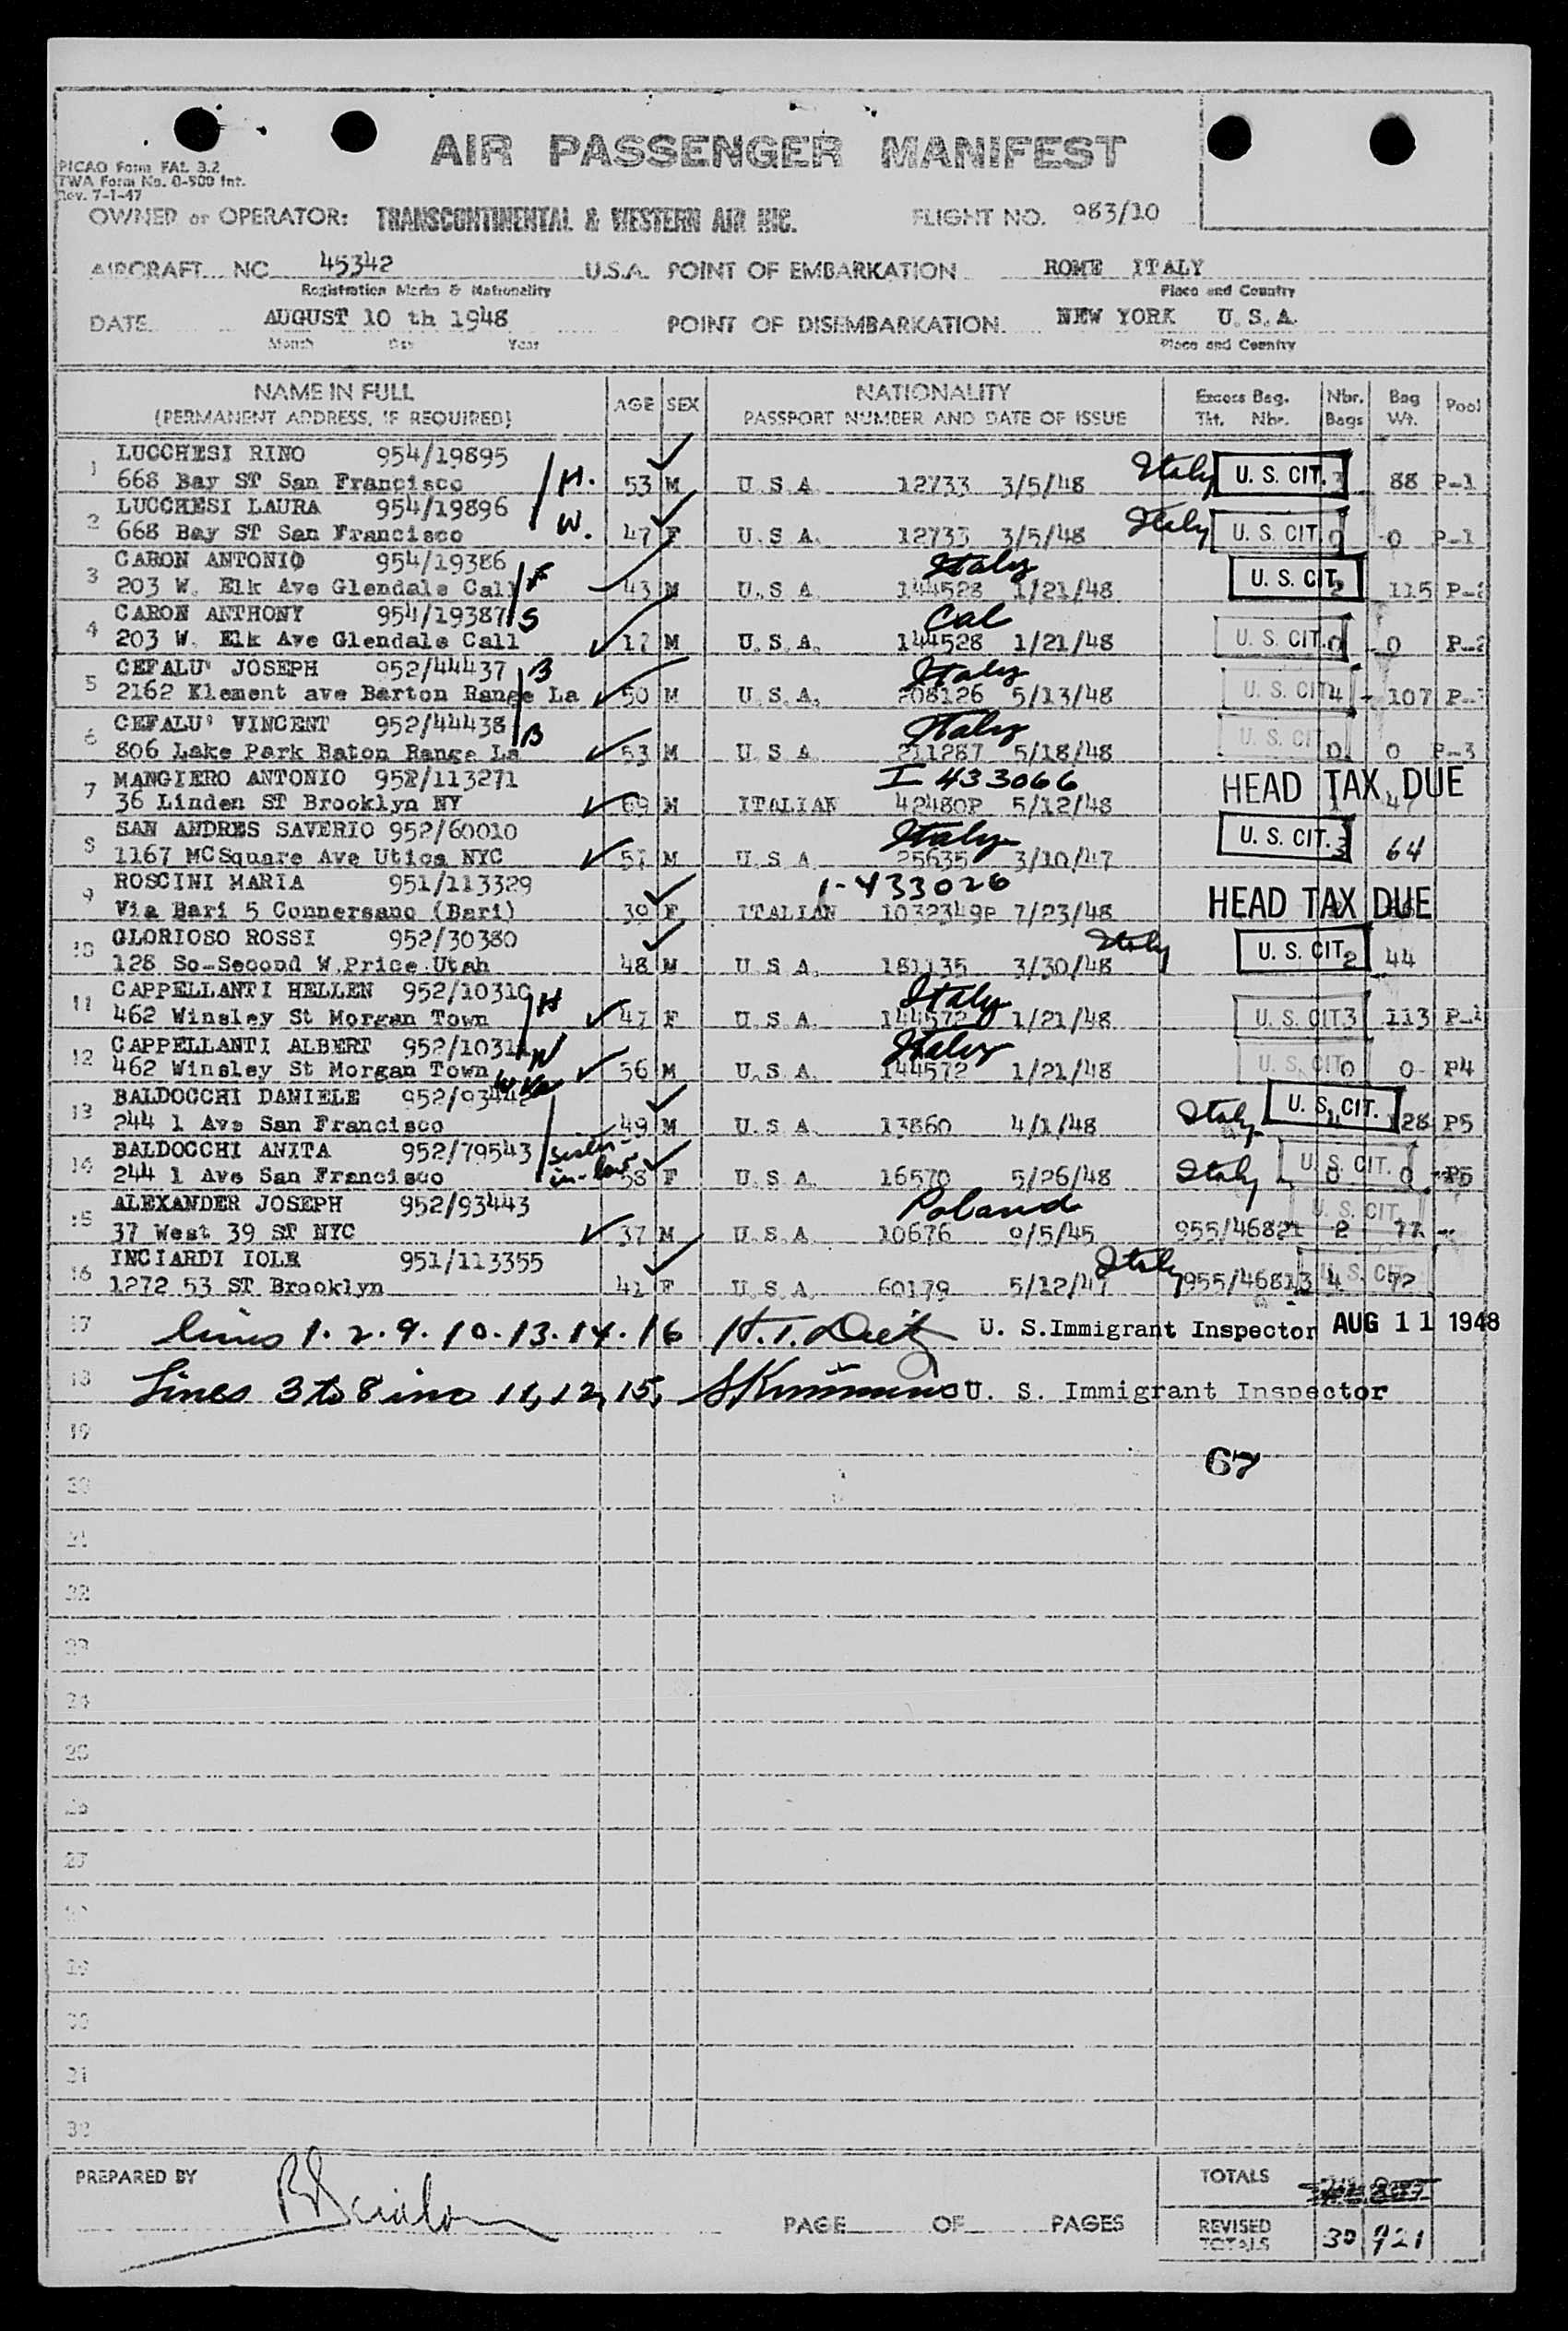 AIR PASSENGER MANIFEST
PICAO Form FAL 3.2
TWA Form No. 0-500 Int.
Rev. 7-1-47
OWNED or OPERATOR: TRANSCONTINENTAL & WESTERN AIR INC. FLIGHT NO. 983/10
AIRCRAFT NC 45342 U.S.A. POINT OF EMBARKATION ROME ITALY
Registration Marks & Nationality Place and Country
DATE AUGUST 10 th 1948 POINT OF DISEMBARKATION NEW YORK U.S.A.
Month Day Year Place and Country
NAME IN FULL AGE SEX NATIONALITY Excess Bag. Nbr. Bag Pool
(PERMANENT ADDRESS, IF REQUIRED) PASSPORT NUMBER AND DATE OF ISSUE Tkt. Nbr. Bags Wt.
1 LUCCHESI RINO 954/19895
668 Bay ST San Francisco H. 53 M U S A 12733 3/5/48 Italy U. S. CIT. 3 88 P-1
2 LUCCHESI LAURA 954/19896
668 Bay ST San Francisco W. 47 F U.S A. 12733 3/5/48 Italy U. S. CIT. 0 0 P-1
3 CARON ANTONIO 954/19386 F Italy
203 W. Elk Ave Glendale Cal 43 M U.S A 144528 1/21/48 U. S. CIT. 2 115 P-2
4 CARON ANTHONY 954/19387 S Cal
203 W. Elk Ave Glendale Call 17 M U.S.A. 144528 1/21/48 U. S. CIT. 0 0 P-2
5 CEFALU' JOSEPH 952/44437 B Italy
2162 Klement ave Barton Range La 50 M U.S.A. 208126 5/13/48 U. S. CIT. 4 107 P-3
6 CEFALU' VINCENT 952/44438 B Italy
806 Lake Park Baton Range La 53 M U S A 211287 5/18/48 U. S. CIT. 0 0 P-3
7 MANGIERO ANTONIO 952/113271 I-433066
36 Linden ST Brooklyn NY 69 M ITALIAN 42480P 5/12/48 HEAD TAX DUE 47
8 SAN ANDRES SAVERIO 952/60010 Italy
1167 MCSquare Ave Utica NYC 57 M U S A 25635 3/10/47 U. S. CIT. 3 64
9 ROSCINI MARIA 951/113329 1-433026
Via Bari 5 Connersano (Bari) 39 F ITALIAN 1032349P 7/23/48 HEAD TAX DUE
10 GLORIOSO ROSSI 952/30380 Italy
128 So-Second W.Price Utah 48 M U S A. 181135 3/30/48 U. S. CIT. 2 44
11 CAPPELLANTI HELLEN 952/10310 H Italy
462 Winsley St Morgan Town 47 F U S A. 144572 1/21/48 U. S. CIT. 3 113
12 CAPPELLANTI ALBERT 952/10311 W Italy
462 Winsley St Morgan Town W Va 56 M U.S.A. 144572 1/21/48 U. S. CIT. 0 0 P4
13 BALDOCCHI DANIELE 952/93442
244 1 Ave San Francisco 49 M U.S A 13860 4/1/48 Italy U. S. CIT. 4 128 P5
14 BALDOCCHI ANITA 952/79543 sister-in-law
244 1 Ave San Francisco 58 F U.S.A 16570 5/26/48 Italy U. S. CIT. 0 0 P5
15 ALEXANDER JOSEPH 952/93443 Poland U. S. CIT.
37 West 39 ST NYC 37 M U.S.A 10676 9/5/45 955/46821 2 77
16 INCIARDI IOLE 951/113355 Italy
1272 53 ST Brooklyn 41 F U.S.A. 60179 5/12/47 955/46813 4 72 U. S. CIT.
17 lines 1. 2. 9. 10. 13. 14. 16 U. S. Immigrant Inspector AUG 11 1948
18 Lines 3 to 8 inc 11, 12, 15, U. S. Immigrant Inspector
19
67
20
21
22
23
24
25
26
27
28
29
30
31
32
PREPARED BY TOTALS
PAGE OF PAGES REVISED TOTALS 30 921